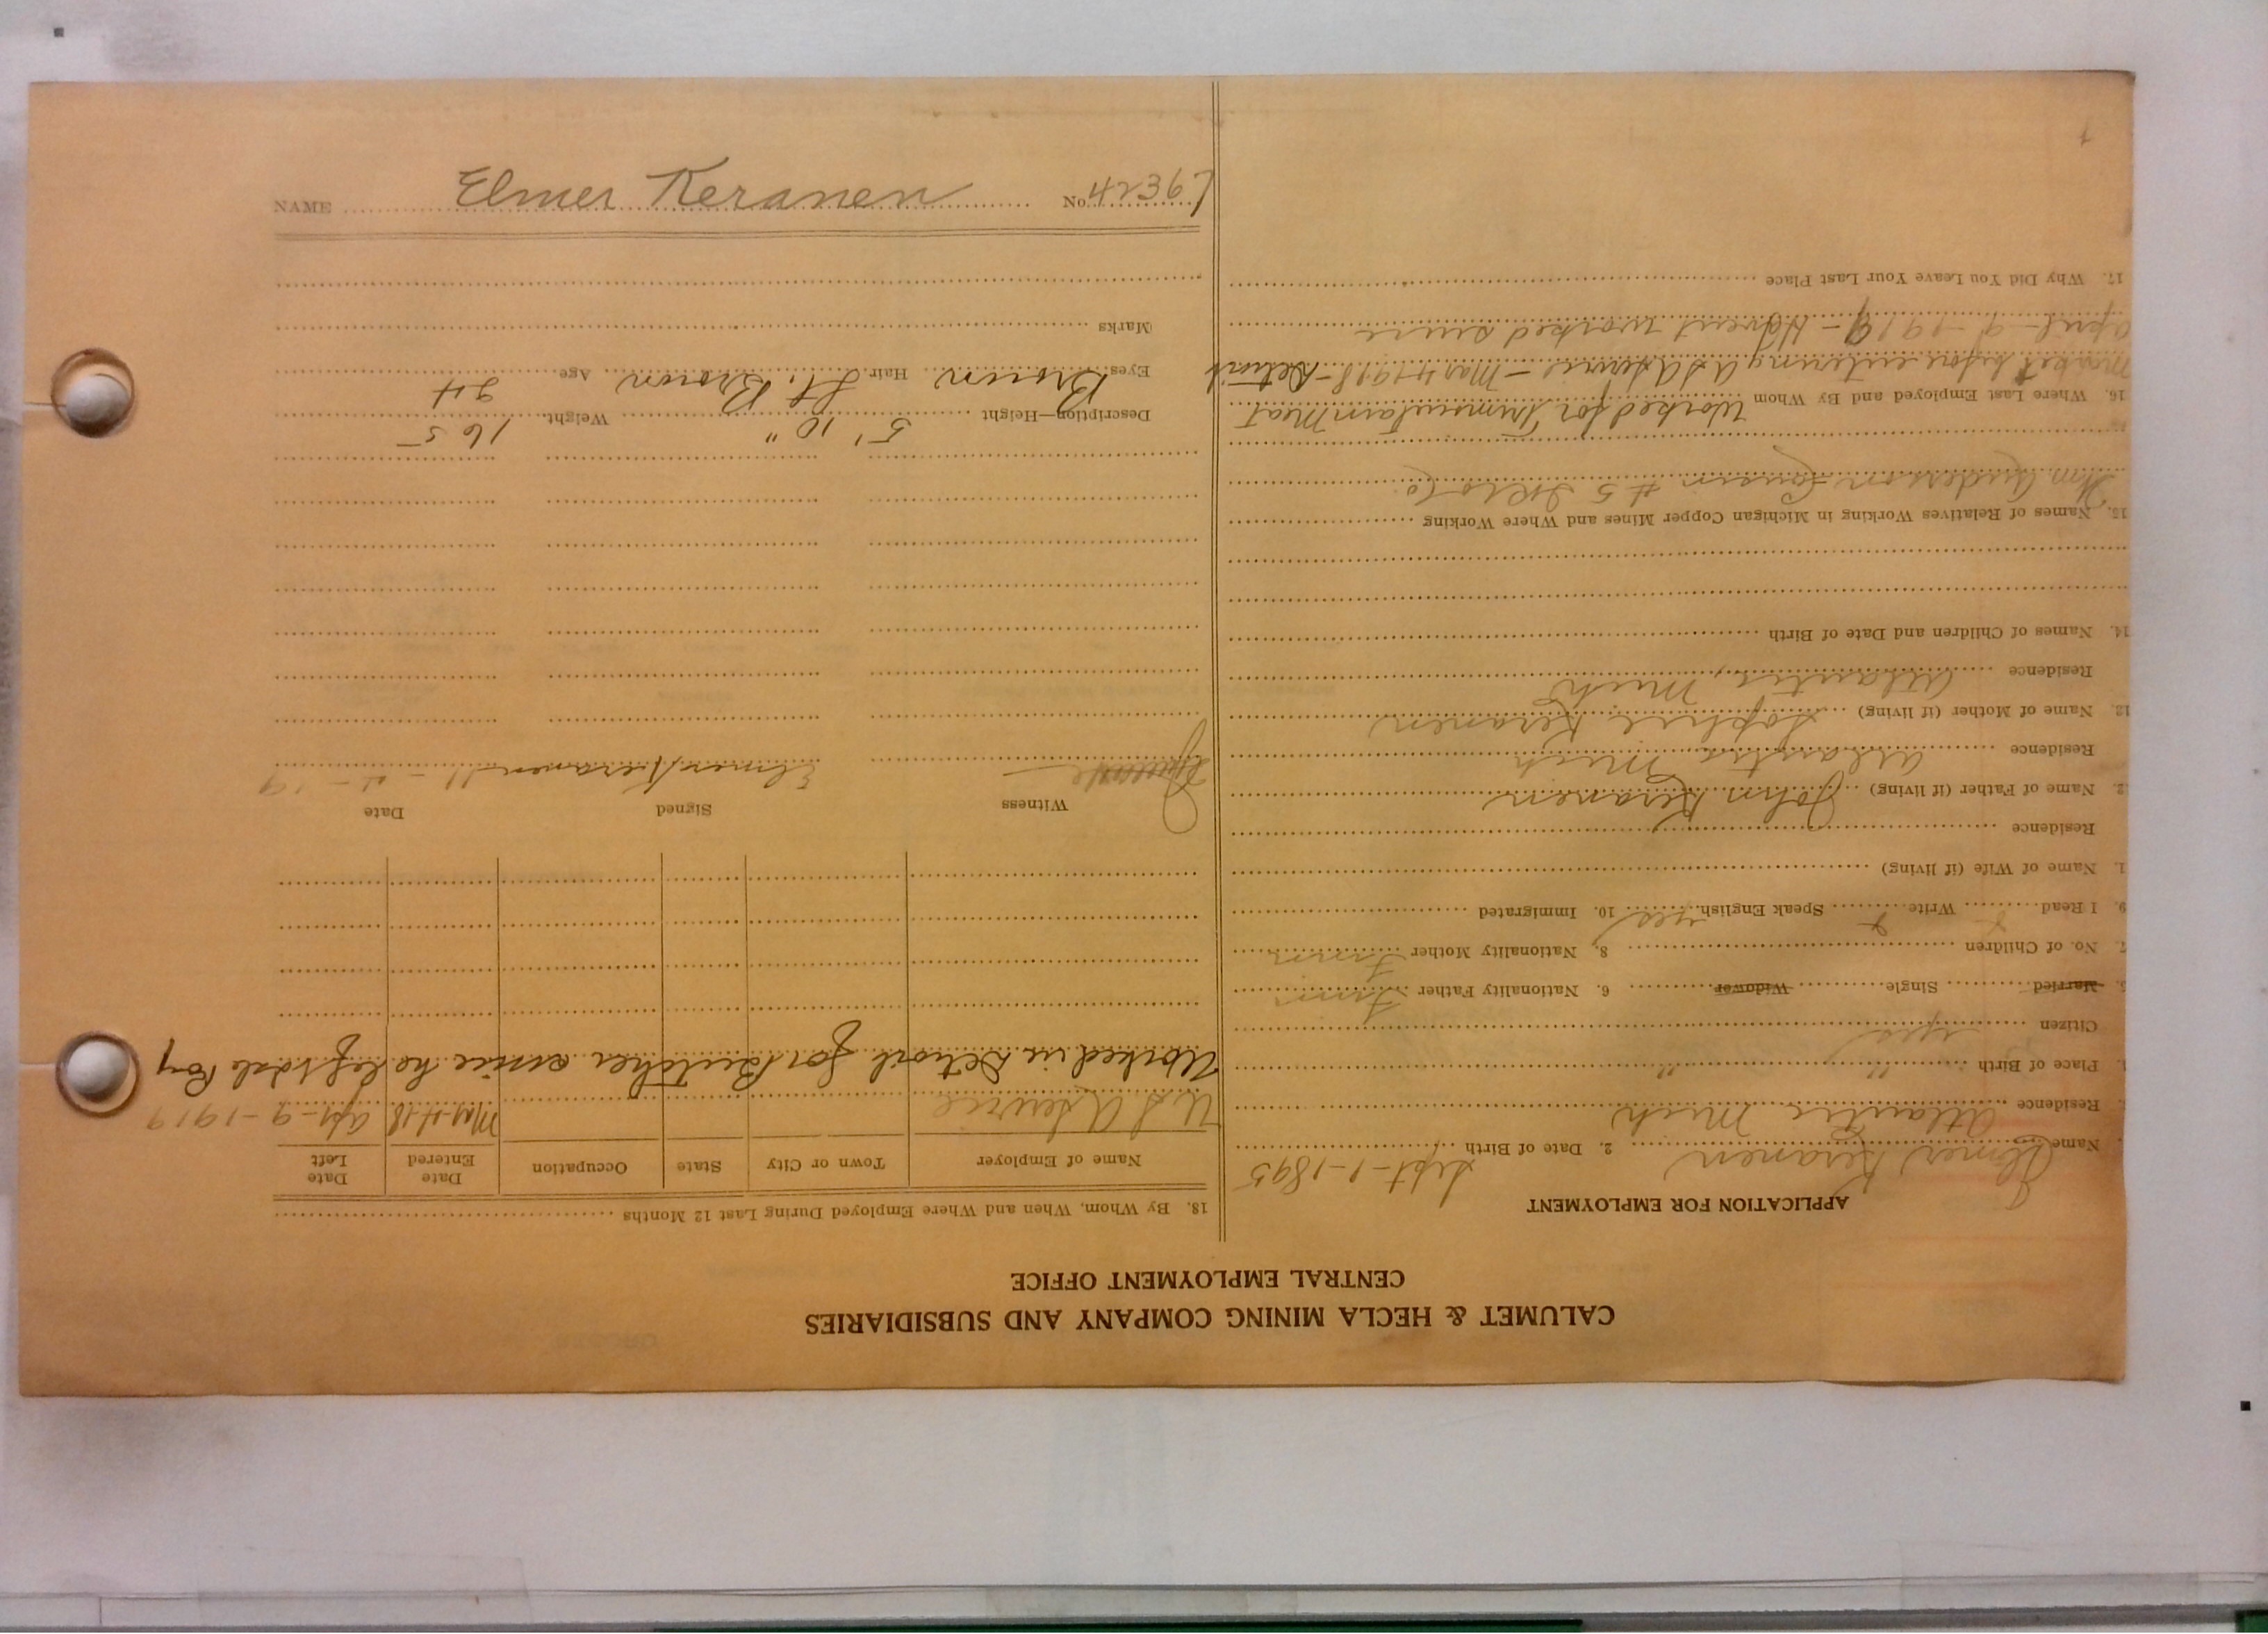 CALUMET & HECLA MINING COMPANY AND SUBSIDIARIES
CENTRAL EMPLOYMENT OFFICE
APPLICATION FOR EMPLOYMENT
Name Elmer Keranen 2. Date of Birth Sept-1-1895
Residence Atlantic Mich
Place of Birth " "
Citizen yes
5. Married Single Widower 6. Nationality Father Finn
7. No. of Children 8. Nationality Mother Finn
9. I Read Write Speak English yes 10. Immigrated
1. Name of Wife (if living)
Residence
2. Name of Father (if living) John Keranen
Residence Atlantic Mich
13. Name of Mother (if living) Sophie Keranen
Residence Atlantic, Mich
14. Names of Children and Date of Birth
15. Names of Relatives Working in Michigan Copper Mines and Where Working
Wm Anderson Cousin #5
16. Where Last Employed and By Whom Worked for Trimountain Meat
Market before entering U S A Service - Mar 4 1918 - Detroit
April - 9 - 1919 - Havent worked since
17. Why Did You Leave Your Last Place
18. By Whom, When and Where Employed During Last 12 Months
Name of Employer Town or City State Occupation Date Entered Date Left
U S A Service Mar-4-18 Apr-9-1919
Worked in Detroit for Butcher since he left
Witness Signed Date
Elmer Keranen 11 - 19
Description—Height 5' 10" Weight 165
Eyes Brown Hair Lt. Brown Age 24
Marks
NAME Elmer Keranen No. 42367